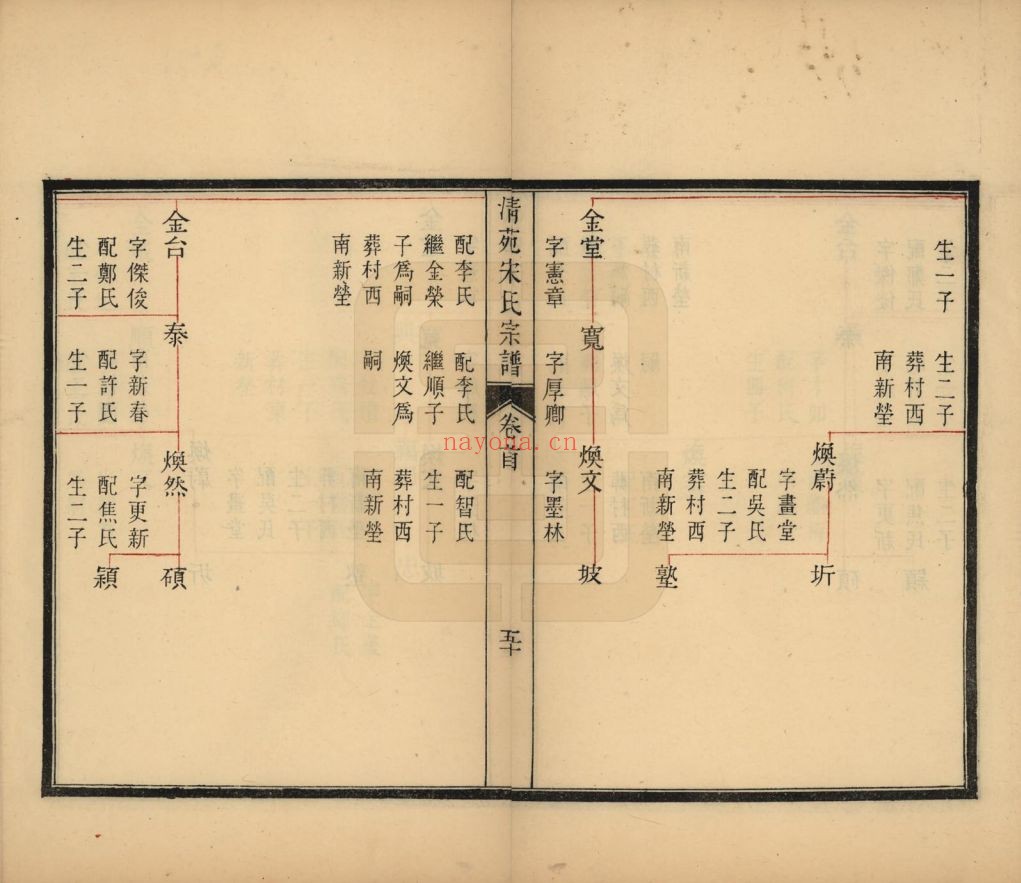 生一子
生二子
葬村西
南新塋
煥蔚
字畫堂
配吳氏
生二子
葬村西
南新塋
圻
塾
金堂
字憲章
寬
字厚卿
煥文
字墨林
坡
清苑宋氏宗譜
卷首
五十
配李氏
繼金榮
子爲嗣
葬村西
南新塋
配李氏
繼順子
煥文爲
嗣
配智氏
生一子
葬村西
南新塋
金台
字傑俊
配鄭氏
生二子
泰
字新春
配許氏
生一子
煥然
字更新
配焦氏
生二子
碩
穎
nayona.cn